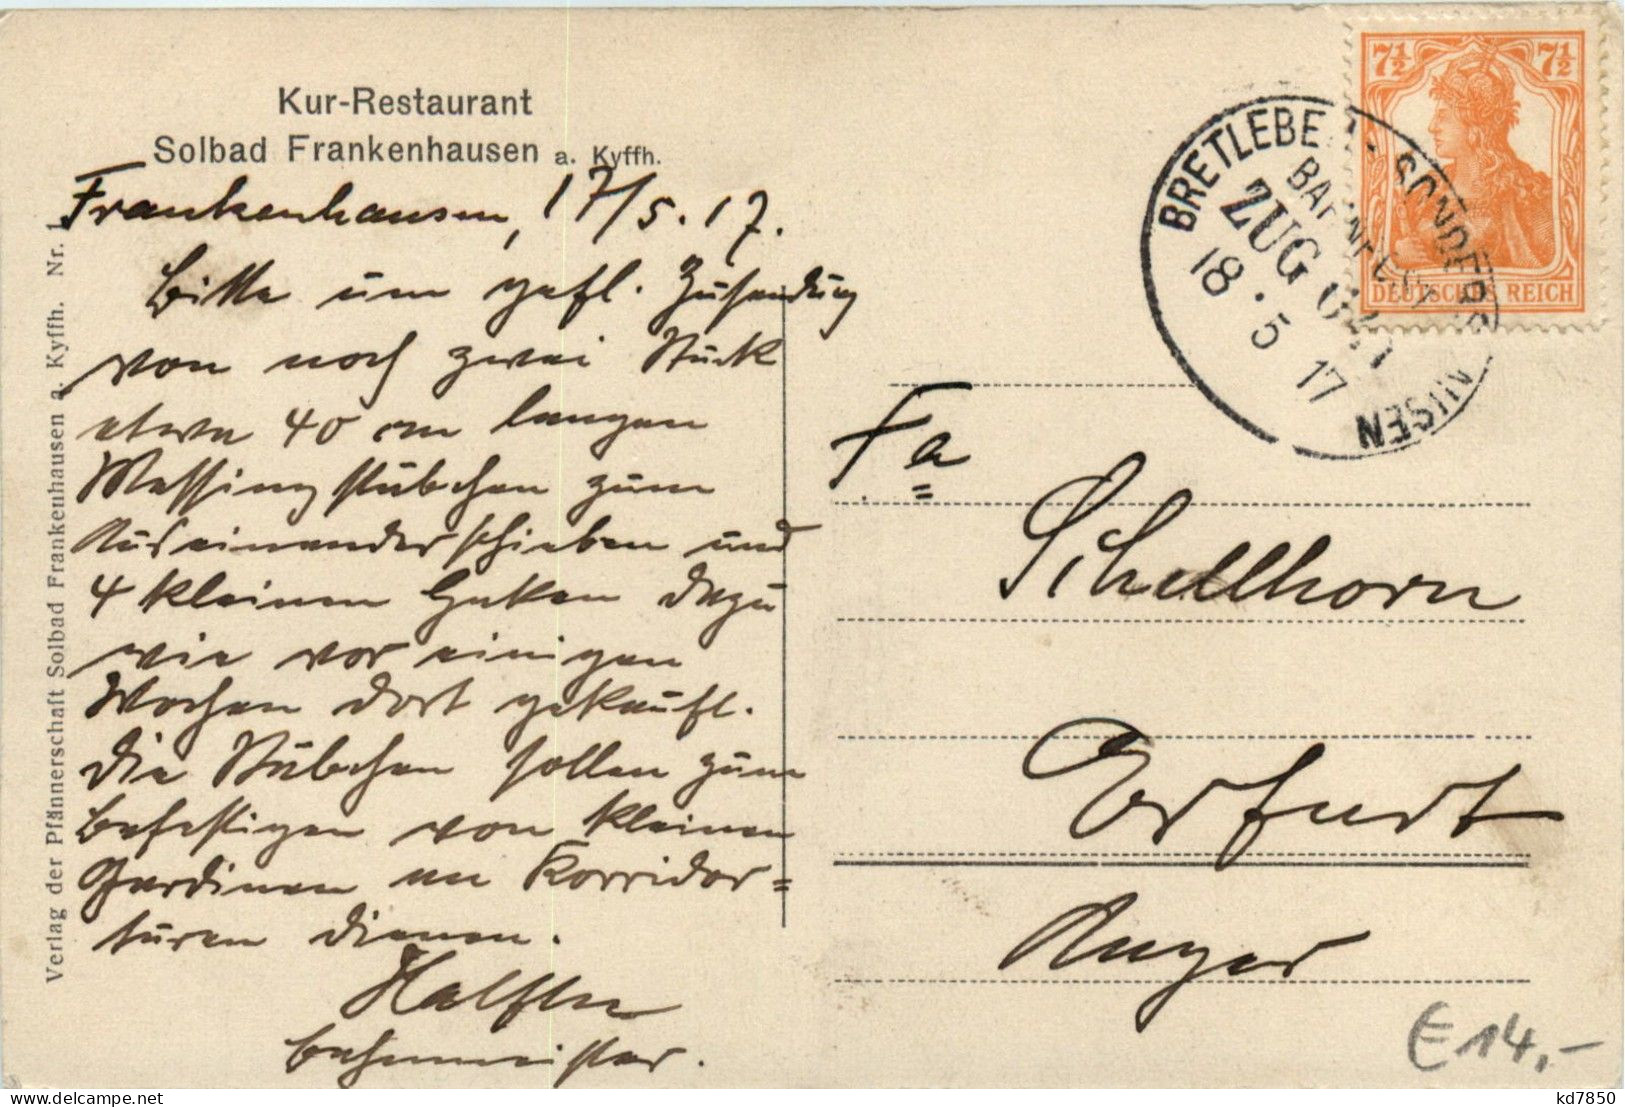 Kur-Restaurant
Solbad Frankenhausen a. Kyffh.
Frankenhausen, 17/5.17.
Bitte um gefl. Zusendung
von noch zwei Stück
etwa 40 cm langen
Messingstäbchen zum
Auseinanderschieben und
4 kleinen Haken dazu
wie vor einigen
Wochen dort gekauft.
Die Stäbchen sollen zum
Befestigen von kleinen
Gardinen an Korridor=
türen dienen.
Bahnmeister.
Verlag der Pfännerschaft Solbad Frankenhausen a. Kyffh. Nr. 1
7½ 7½
DEUTSCHES REICH
BRETLEBEN - SONDERSHAUSEN
BAHNPOST
ZUG
18.5 17
Fa
Schellhorn
Erfurt
Anger
€14,-
kd7850